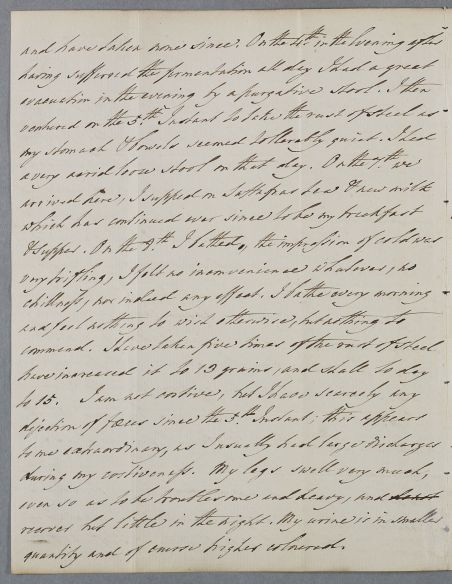 and have taken none since. On the 4th in the Evening after
having suffered the fermentation all day I had a great
evacuation in the evening by a purgative stool. I then
ventured on the 5th Instant to take the rust of steel as
my stomach & bowels seemed tollerably quiet. I had
a very acrid loose stool on that day. On the 7th we
arrived here; I supped on Sassafras tea & new milk
which has continued ever since to be my breakfast
& supper. On the 8th I bathed, the impression of cold was
very trifling, I felt no inconvenience whatever, no
chillness, nor indeed any effect. I bathe every morning
and feel nothing to wish otherwise, but nothing to
commend. I have taken five times of the rust of steel
have increased it to 12 grains, and shall to day
to 15. I am not costive, but I have scarcely any
dejection of fæces since the 5th Instant; this appears
to me extraordinary, as I usually had large discharges
during my costiveness. My legs swell very much,
even so as to be troublesome and heavy, and
recover but little in the night. My urine is in smaller
quantity and of course higher coloured.